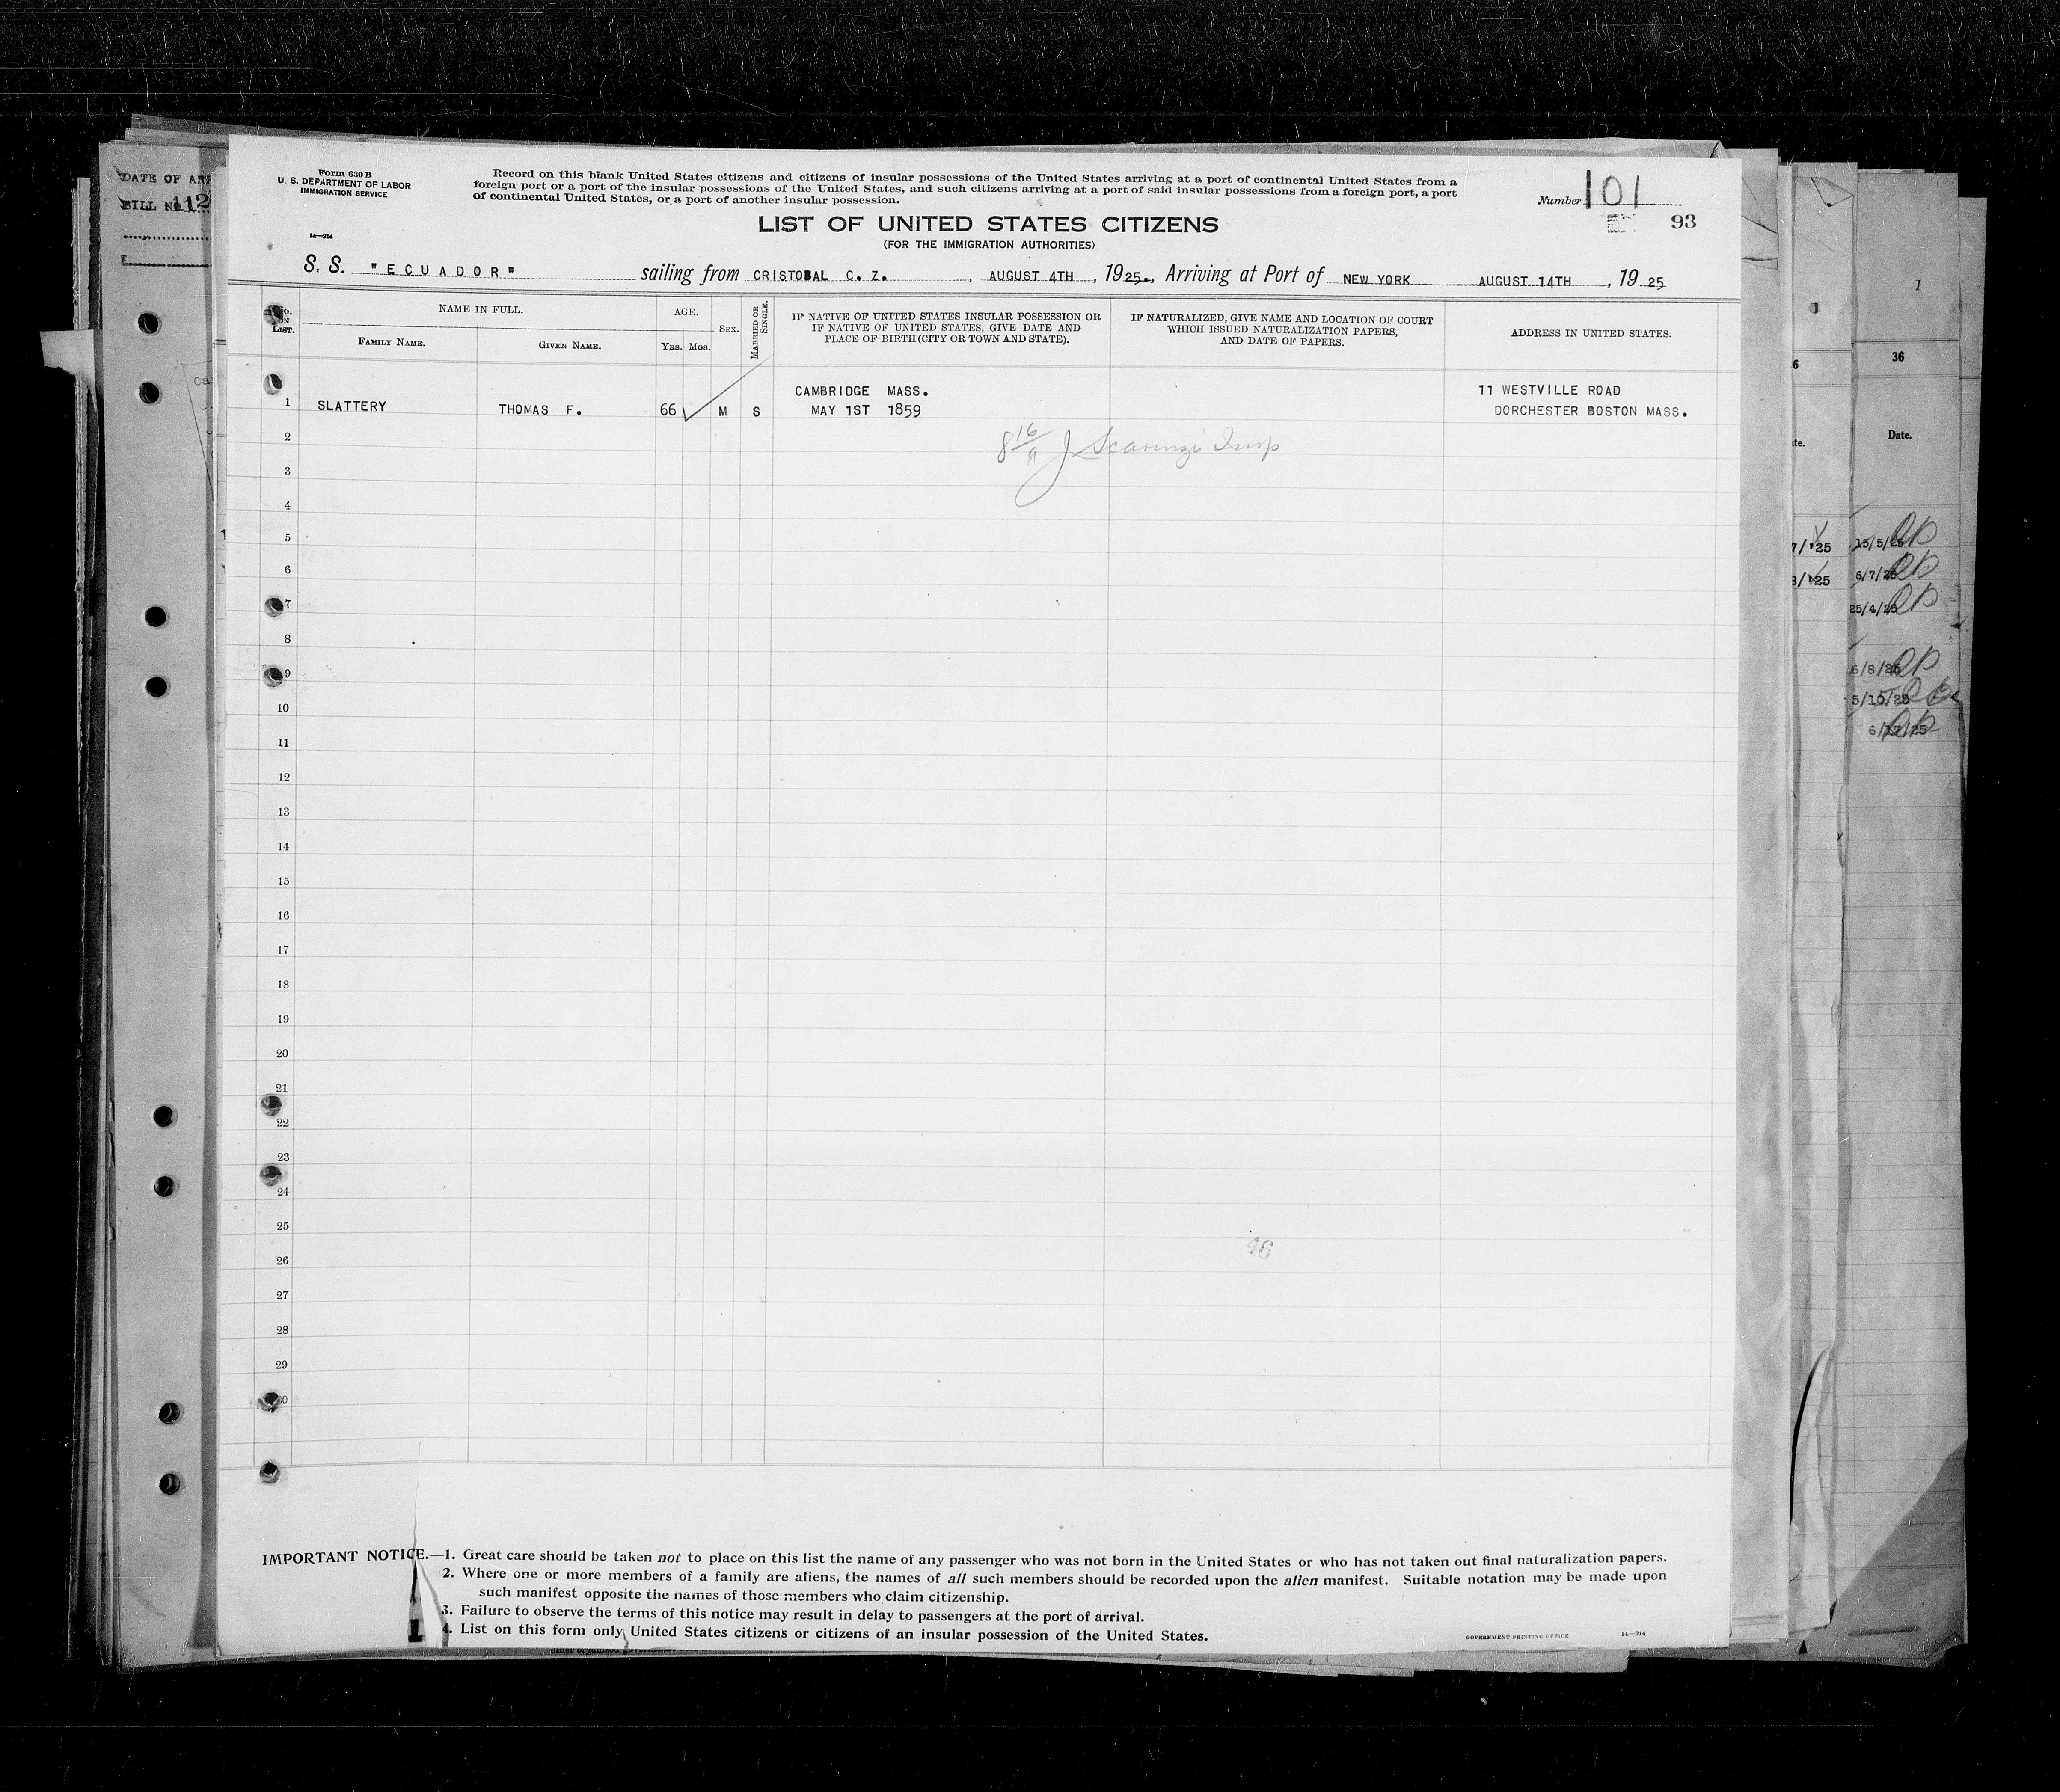 Form 630 B
U. S. DEPARTMENT OF LABOR
IMMIGRATION SERVICE
14—214
Record on this blank United States citizens and citizens of insular possessions of the United States arriving at a port of continental United States from a
foreign port or a port of the insular possessions of the United States, and such citizens arriving at a port of said insular possessions from a foreign port, a port
of continental United States, or a port of another insular possession.
Number 101
93
LIST OF UNITED STATES CITIZENS
(FOR THE IMMIGRATION AUTHORITIES)
S. S. "ECUADOR" sailing from CRISTOBAL C. Z. , AUGUST 4TH , 1925., Arriving at Port of NEW YORK AUGUST 14TH , 1925
No. ON LIST.
NAME IN FULL.
FAMILY NAME.
GIVEN NAME.
AGE.
YRS. MOS.
SEX.
MARRIED OR SINGLE.
IF NATIVE OF UNITED STATES INSULAR POSSESSION OR
IF NATIVE OF UNITED STATES, GIVE DATE AND
PLACE OF BIRTH (CITY OR TOWN AND STATE).
IF NATURALIZED, GIVE NAME AND LOCATION OF COURT
WHICH ISSUED NATURALIZATION PAPERS,
AND DATE OF PAPERS.
ADDRESS IN UNITED STATES.
CAMBRIDGE MASS. 11 WESTVILLE ROAD
1 SLATTERY THOMAS F. 66 M S MAY 1ST 1859 DORCHESTER BOSTON MASS.
2
3
4
5
6
7
8
9
10
11
12
13
14
15
16
17
18
19
20
21
22
23
24
25
26
27
28
29
30
IMPORTANT NOTICE.—1. Great care should be taken not to place on this list the name of any passenger who was not born in the United States or who has not taken out final naturalization papers.
2. Where one or more members of a family are aliens, the names of all such members should be recorded upon the alien manifest. Suitable notation may be made upon
such manifest opposite the names of those members who claim citizenship.
3. Failure to observe the terms of this notice may result in delay to passengers at the port of arrival.
4. List on this form only United States citizens or citizens of an insular possession of the United States.
GOVERNMENT PRINTING OFFICE 14—214
DATE OF ARR
BILL No 112
1
36
Date.
7/'25
15/5/25
6/7/25
25/4/25
6/8/25